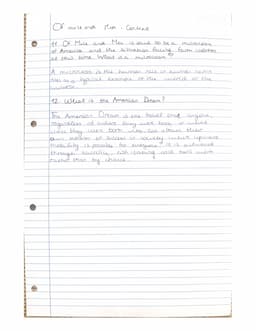 Of mice and Men - Context
11. Of Mice and Men is said to be a microcosm
of America and the situation facing farm workers
at this time. What is a microcosm?
A microcosm is the human race in
as a typical example of the
12. What is the American Dream?
The American Dream is the belief that anyone,
regardless of where they were born or what
class they were born into, can attain their
own version of success in society where upward
mobility is possible for everyone. It is achieved
through sacrifice, risk-taking and hard work
rather than by chance.